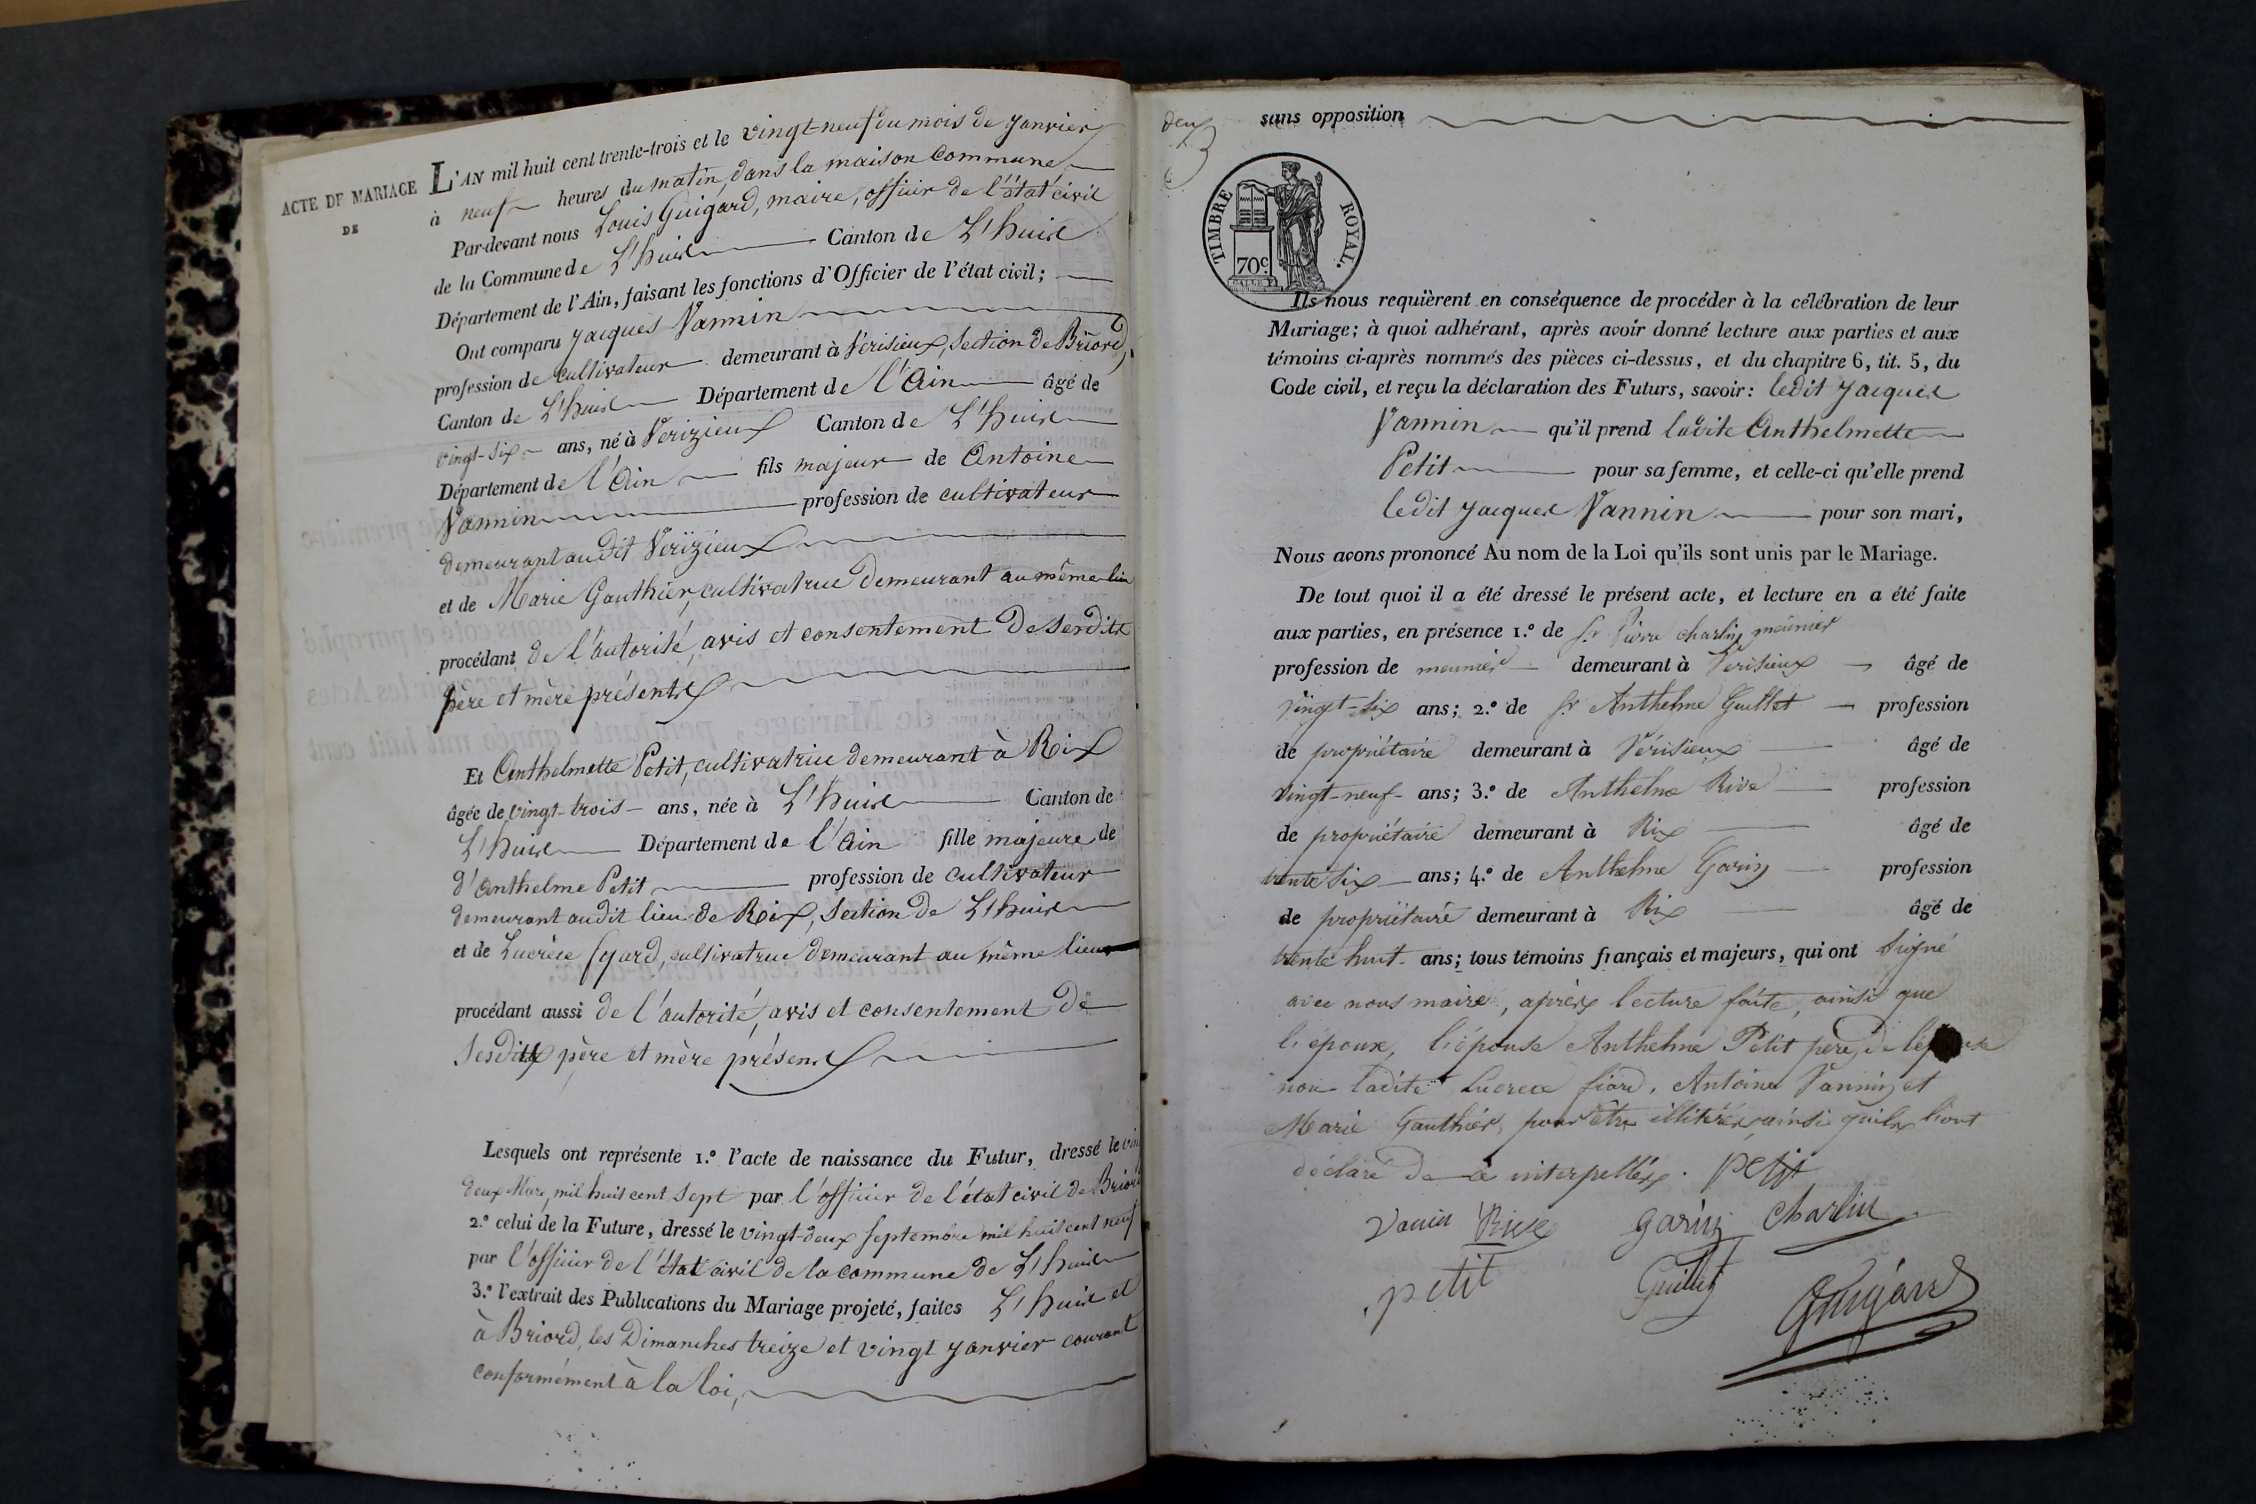 ACTE DE MARIAGE
DE
L'AN mil huit cent trente-trois et le vingt-neuf du mois de janvier
à neuf heures du matin, dans la maison Commune
Par-devant nous Louis Guigard, maire, officier de l'état civil
de la Commune de L'huis Canton de L'huis
Département de l'Ain, faisant les fonctions d'Officier de l'état civil;
Ont comparu Jacques Vannin
profession de cultivateur demeurant à Vérisieux, section de Briord,
Canton de L'huis Département de l'Ain âgé de
vingt-six ans, né à Verizieux Canton de L'huis
Département de l'Ain fils majeur de Antoine
Vannin profession de cultivateur
demeurant audit Verizieux
et de Marie Gauthier, cultivatrice demeurant au même lieu
procédant de l'autorité, avis et consentement de sesdits
père et mère présents
Et Anthelmette Petit, cultivatrice demeurant à Rix
âgée de vingt-trois ans, née à L'huis Canton de
L'huis Département de l'Ain fille majeure de
d'anthelme Petit profession de cultivateur
demeurant audit lieu de Rix, section de L'huis
et de Lucrèce fyard, cultivatrice demeurant au même lieu
procédant aussi de l'autorité, avis et consentement de
sesdits père et mère présens
Lesquels ont représente 1.º l'acte de naissance du Futur, dressé le
deux Mars, mil huit cent sept par l'officier de l'état civil de Briord
2.º celui de la Future, dressé le vingt-deux septembre mil huit cent neuf
par l'officier de l'état civil de la commune de L'huis
3.º l'extrait des Publications du Mariage projeté, faites L'huis et
à Briord, les Dimanches treize et vingt janvier courant
conformément à la loi,
deux
sans opposition
TIMBRE ROYAL.
70c.
Ils nous requièrent en conséquence de procéder à la célébration de leur
Mariage; à quoi adhérant, après avoir donné lecture aux parties et aux
témoins ci-après nommés des pièces ci-dessus, et du chapitre 6, tit. 5, du
Code civil, et reçu la déclaration des Futurs, savoir: ledit Jacques
Vannin qu'il prend ladite Anthelmette
Petit pour sa femme, et celle-ci qu'elle prend
ledit Jacques Vannin pour son mari,
Nous avons prononcé Au nom de la Loi qu'ils sont unis par le Mariage.
De tout quoi il a été dressé le présent acte, et lecture en a été faite
aux parties, en présence 1.º de Sr Pierre charlin meunier
profession de meunier demeurant à Verisieux âgé de
vingt-six ans; 2.º de Sr Anthelme Guillet profession
de propriétaire demeurant à Vérisieux âgé de
vingt-neuf ans; 3.º de Anthelme Rive profession
de propriétaire demeurant à Rix âgé de
trente six ans; 4.º de Anthelme Garin profession
de propriétaire demeurant à Rix âgé de
trente huit ans; tous témoins français et majeurs, qui ont signé
avec nous maire, après lecture faite, ainsi que
l'époux, l'épouse Anthelme Petit père de
non ladite Lucrece fiard, Antoine Vannin et
Marie Gauthier, pour être illitérés, ainsi quils l'ont
déclaré de ce interpellés. Petit
Vanin Rive garin Charlin
petit Guillet Guigard